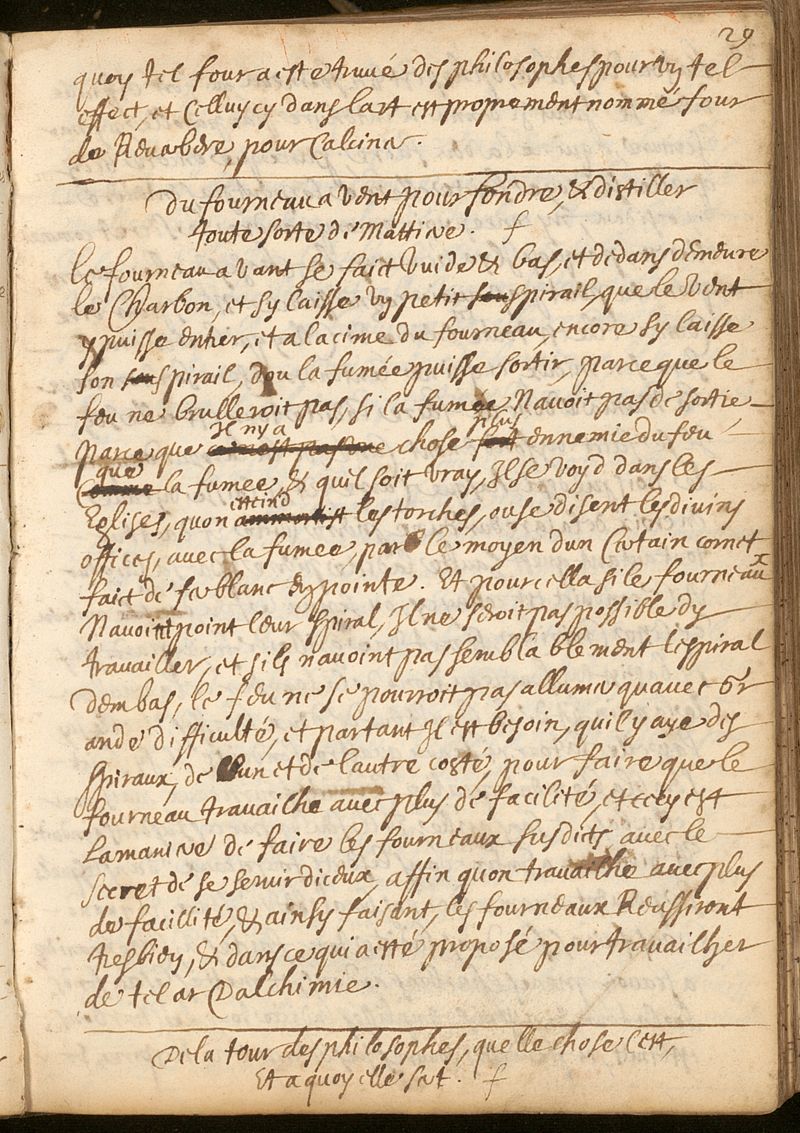 29
quoy tel four a este truué des philosophes pour vy tel
effect, et Celluycy dans lart est proprement nommé four
de Reuabere, pour Calciner.
Du fourneau a vent pour fondre, & distiller
toute sorte de Mattiere. f
le fourneau a vant se faict vuide & bas, et dedans demeure
le Charbon, et sy laisse vy petit souspirail, que le vent
y puisse entrer, et a la cime du fourneau, encore sy laisse
son souspirail, dou la fumée puisse sortir, parce que le
feu ne brulleroit pas, si la fumee Nauoit pas de sortie
Jl ny a plus
parce que chose ennemie du feu
que
Comme la fumee, & quil soit vray, Jl se voyd dans les
esteind
Eglises, quon les torches, ou se disent les diuins
offices, auec la fumee, par le moyen dun Certain cornet
faict de fer blanc en pointe. Et pour cella si le fourneaux
Nauoint point leur spiral, Jl ne seroit pas possible dy
trauailler, et sils nauoint pas semblablement lespiral
dembas, le feu ne se pourroit pas allumer quauec Gr
ande difficulté, et partant Jl est besoin, quil y aye des
spiraux, de lun et de lautre costé, pour faire que le
fourneau trauailhe auec plus de facilité, et cecy est
La maniere de faire les fourneaux susdits auec le
Secret de se seruir diceux, affin quon trauailhe auec plus
de facillité, & ainsy faisant, les fourneaux Reussiront
tresbien, & dans ce qui a esté proposé pour trauailher
de tel ar Dalchimie.
De la tour des philosophes, quelle chose Cest,
Et a quoy elle sert. f